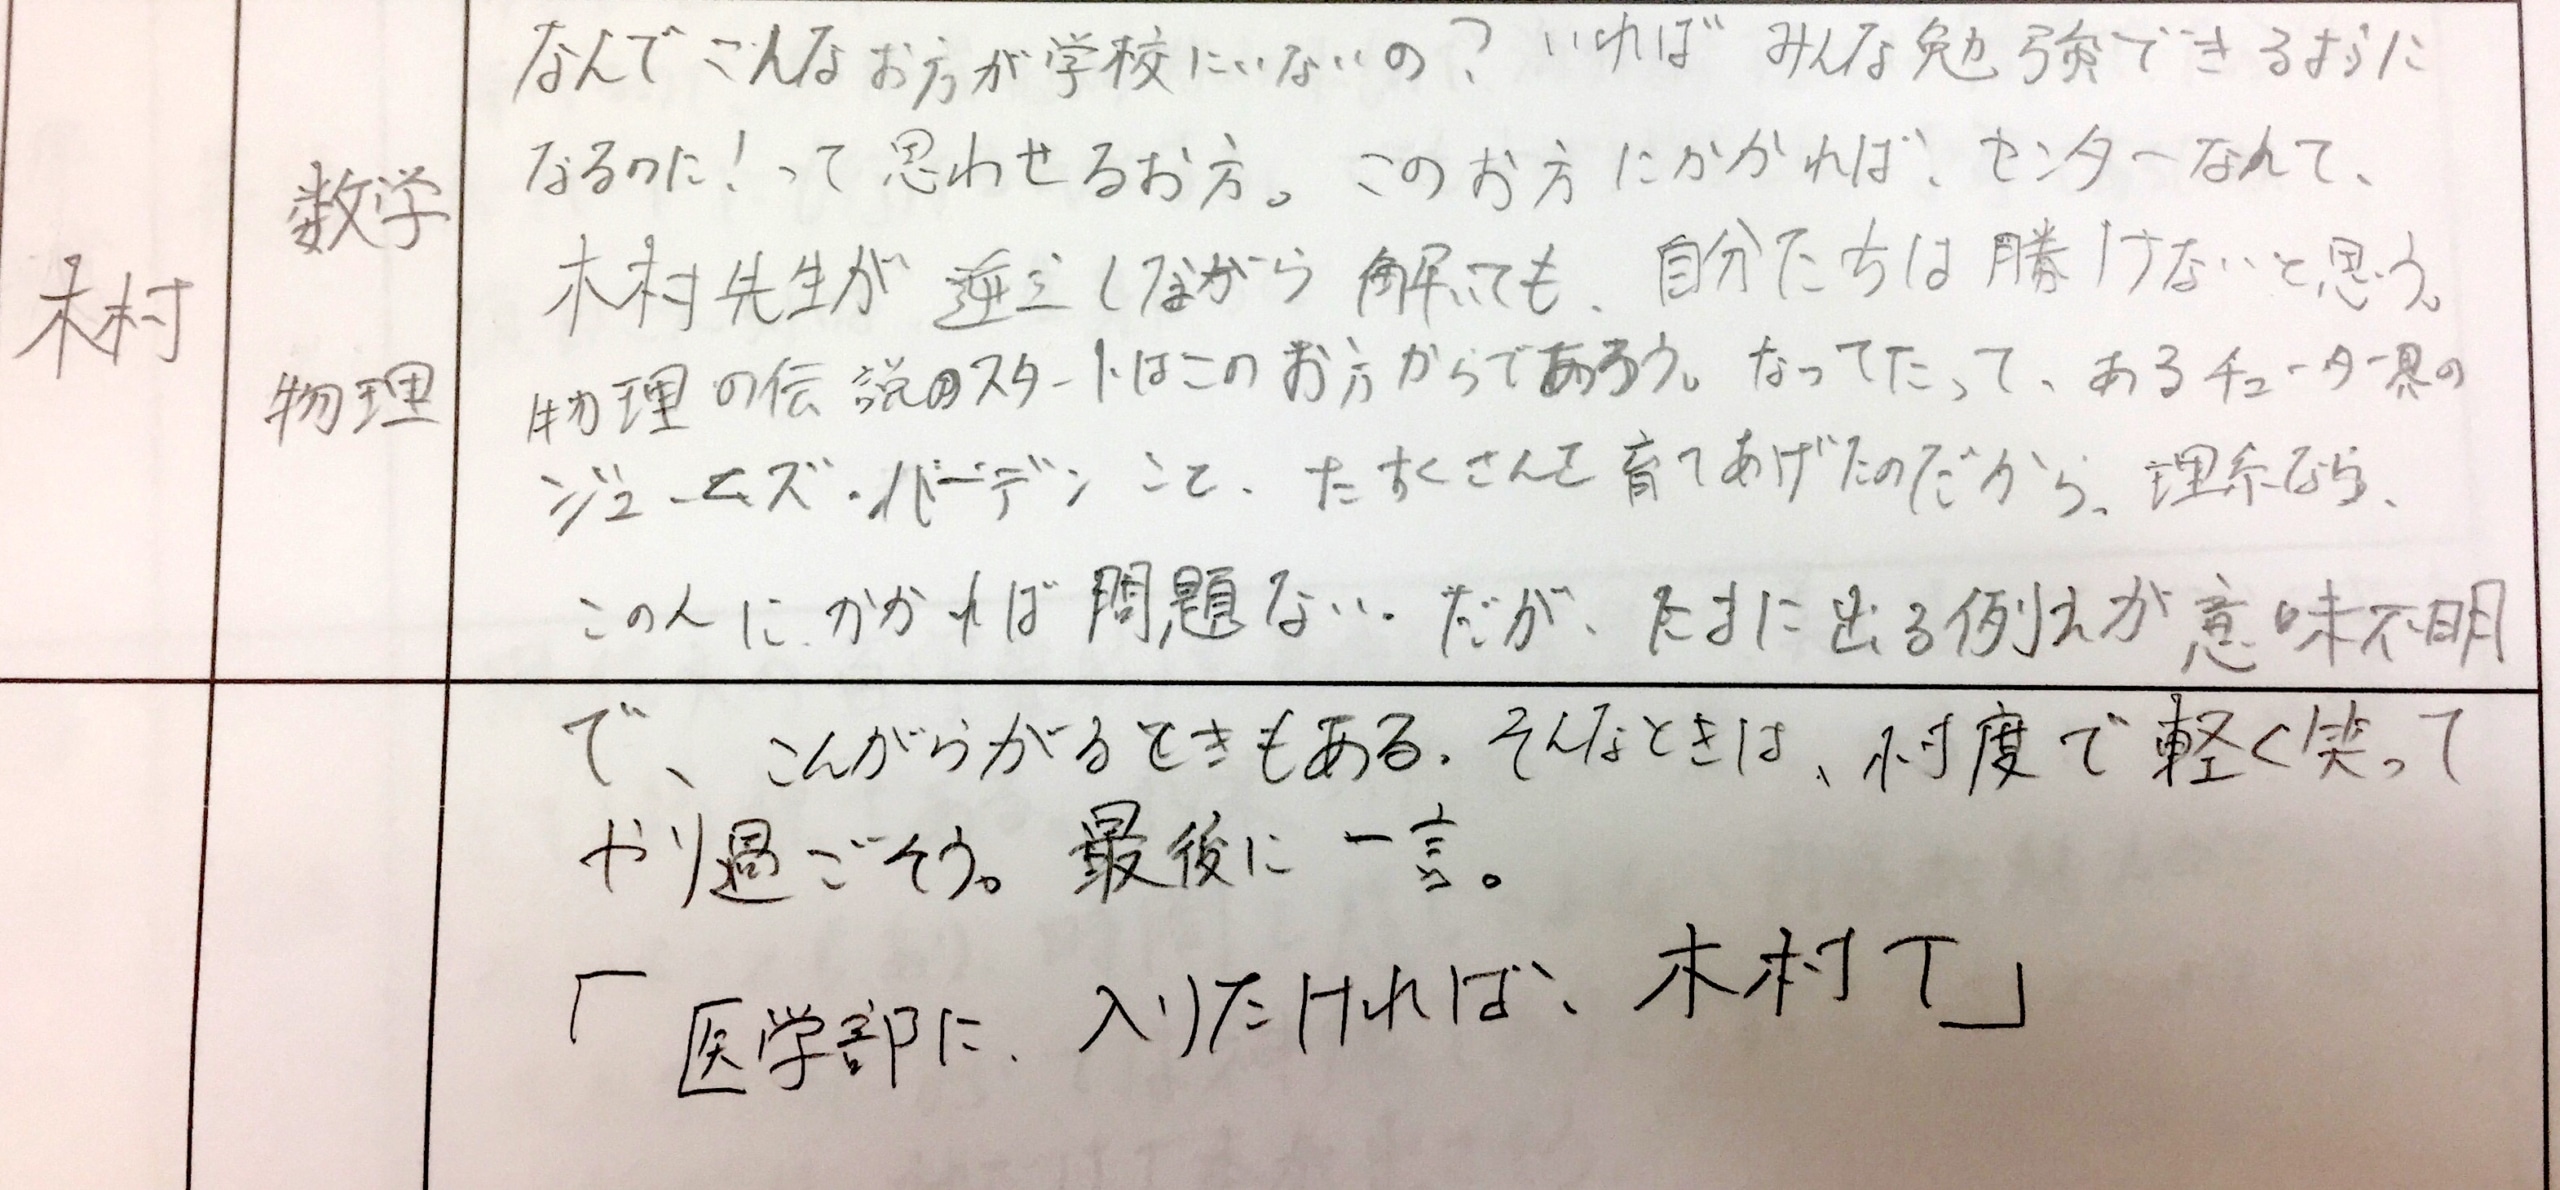 木村
数学
物理
なんでこんなお方が学校にいないの？いればみんな勉強できるように
なるのに！って思わせるお方。このお方にかかれば、センターなんて、
木村先生が逆立しながら解いても、自分たちは勝けないと思う。
物理の伝説のスタートはこのお方からであろう。なってたって、あるチューター界の
ジェームズ・バーデンこと、たすくさんを育てあげたのだから。理系なら、
この人に、かかれば問題ない。だが、たまに出る例えが意味不明
で、こんがらがるときもある。そんなときは、忖度で軽く笑って
やり過ごそう。最後に一言。
「医学部に、入りたければ、木村T」